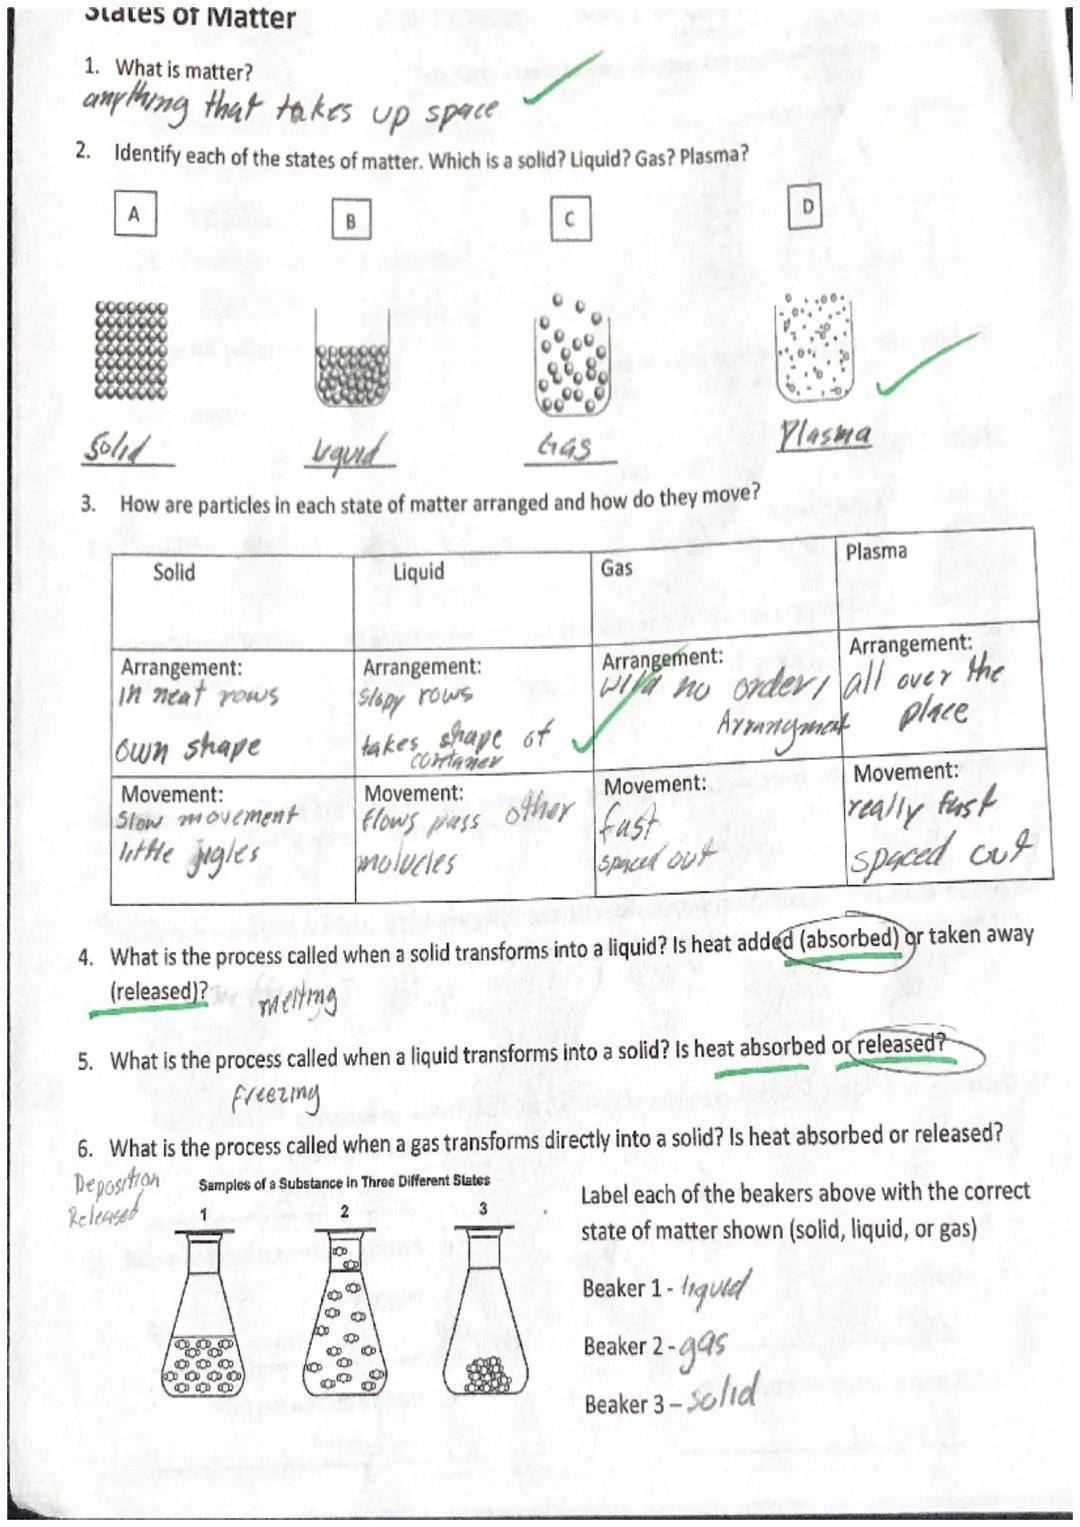 States of Matter
1. What is matter?
anything that takes up space
2. Identify each of the states of matter. Which is a solid? Liquid? Gas? Plasma?
A B C D
Solid Liquid Gas Plasma
3. How are particles in each state of matter arranged and how do they move?
Solid Liquid Gas Plasma
Arrangement:
in neat rows
own shape
Arrangement:
slopy rows
takes shape of
container
Arrangement:
with no order,
Arrangment
Arrangement:
all over the
place
Movement:
Slow movement
little jigles
Movement:
flows pass other
molucles
Movement:
fast
spaced out
Movement:
really fast
spaced out
4. What is the process called when a solid transforms into a liquid? Is heat added (absorbed) or taken away
(released)?
melting
5. What is the process called when a liquid transforms into a solid? Is heat absorbed or released?
freezing
6. What is the process called when a gas transforms directly into a solid? Is heat absorbed or released?
Deposition
Released
Samples of a Substance in Three Different States
1 2 3
Label each of the beakers above with the correct
state of matter shown (solid, liquid, or gas)
Beaker 1 - liquid
Beaker 2 - gas
Beaker 3 – solid